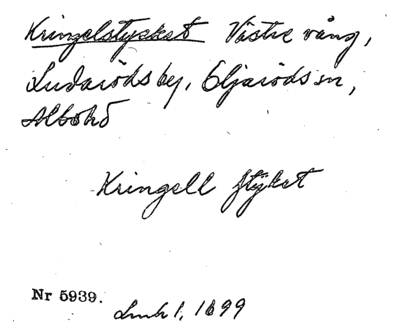 Kringelstycket Västre vång,
Ludaröds by, Eljaröds sn,
Albo hd
Kringell stÿket
Nr 5939.
Lmk 1, 1699